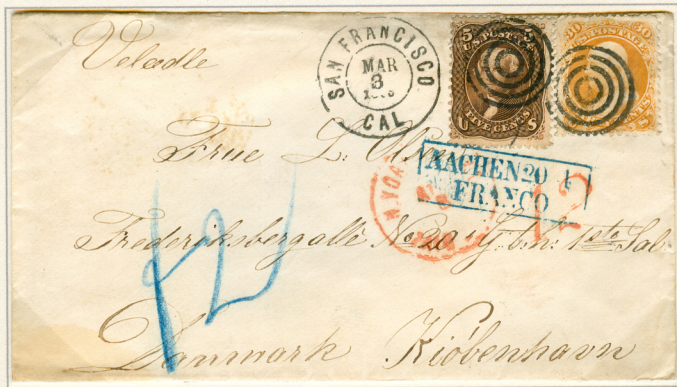 SAN FRANCISCO
MAR
3
CAL
5 U.S. POSTAGE 5
FIVE CENTS
30 POSTAGE 30
Frue L.
AACHEN 20 4
FRANCO
N.YORK
12
Frederiksbergallé No 20 1ste Sal
12
Danmark Kiöbenhavn